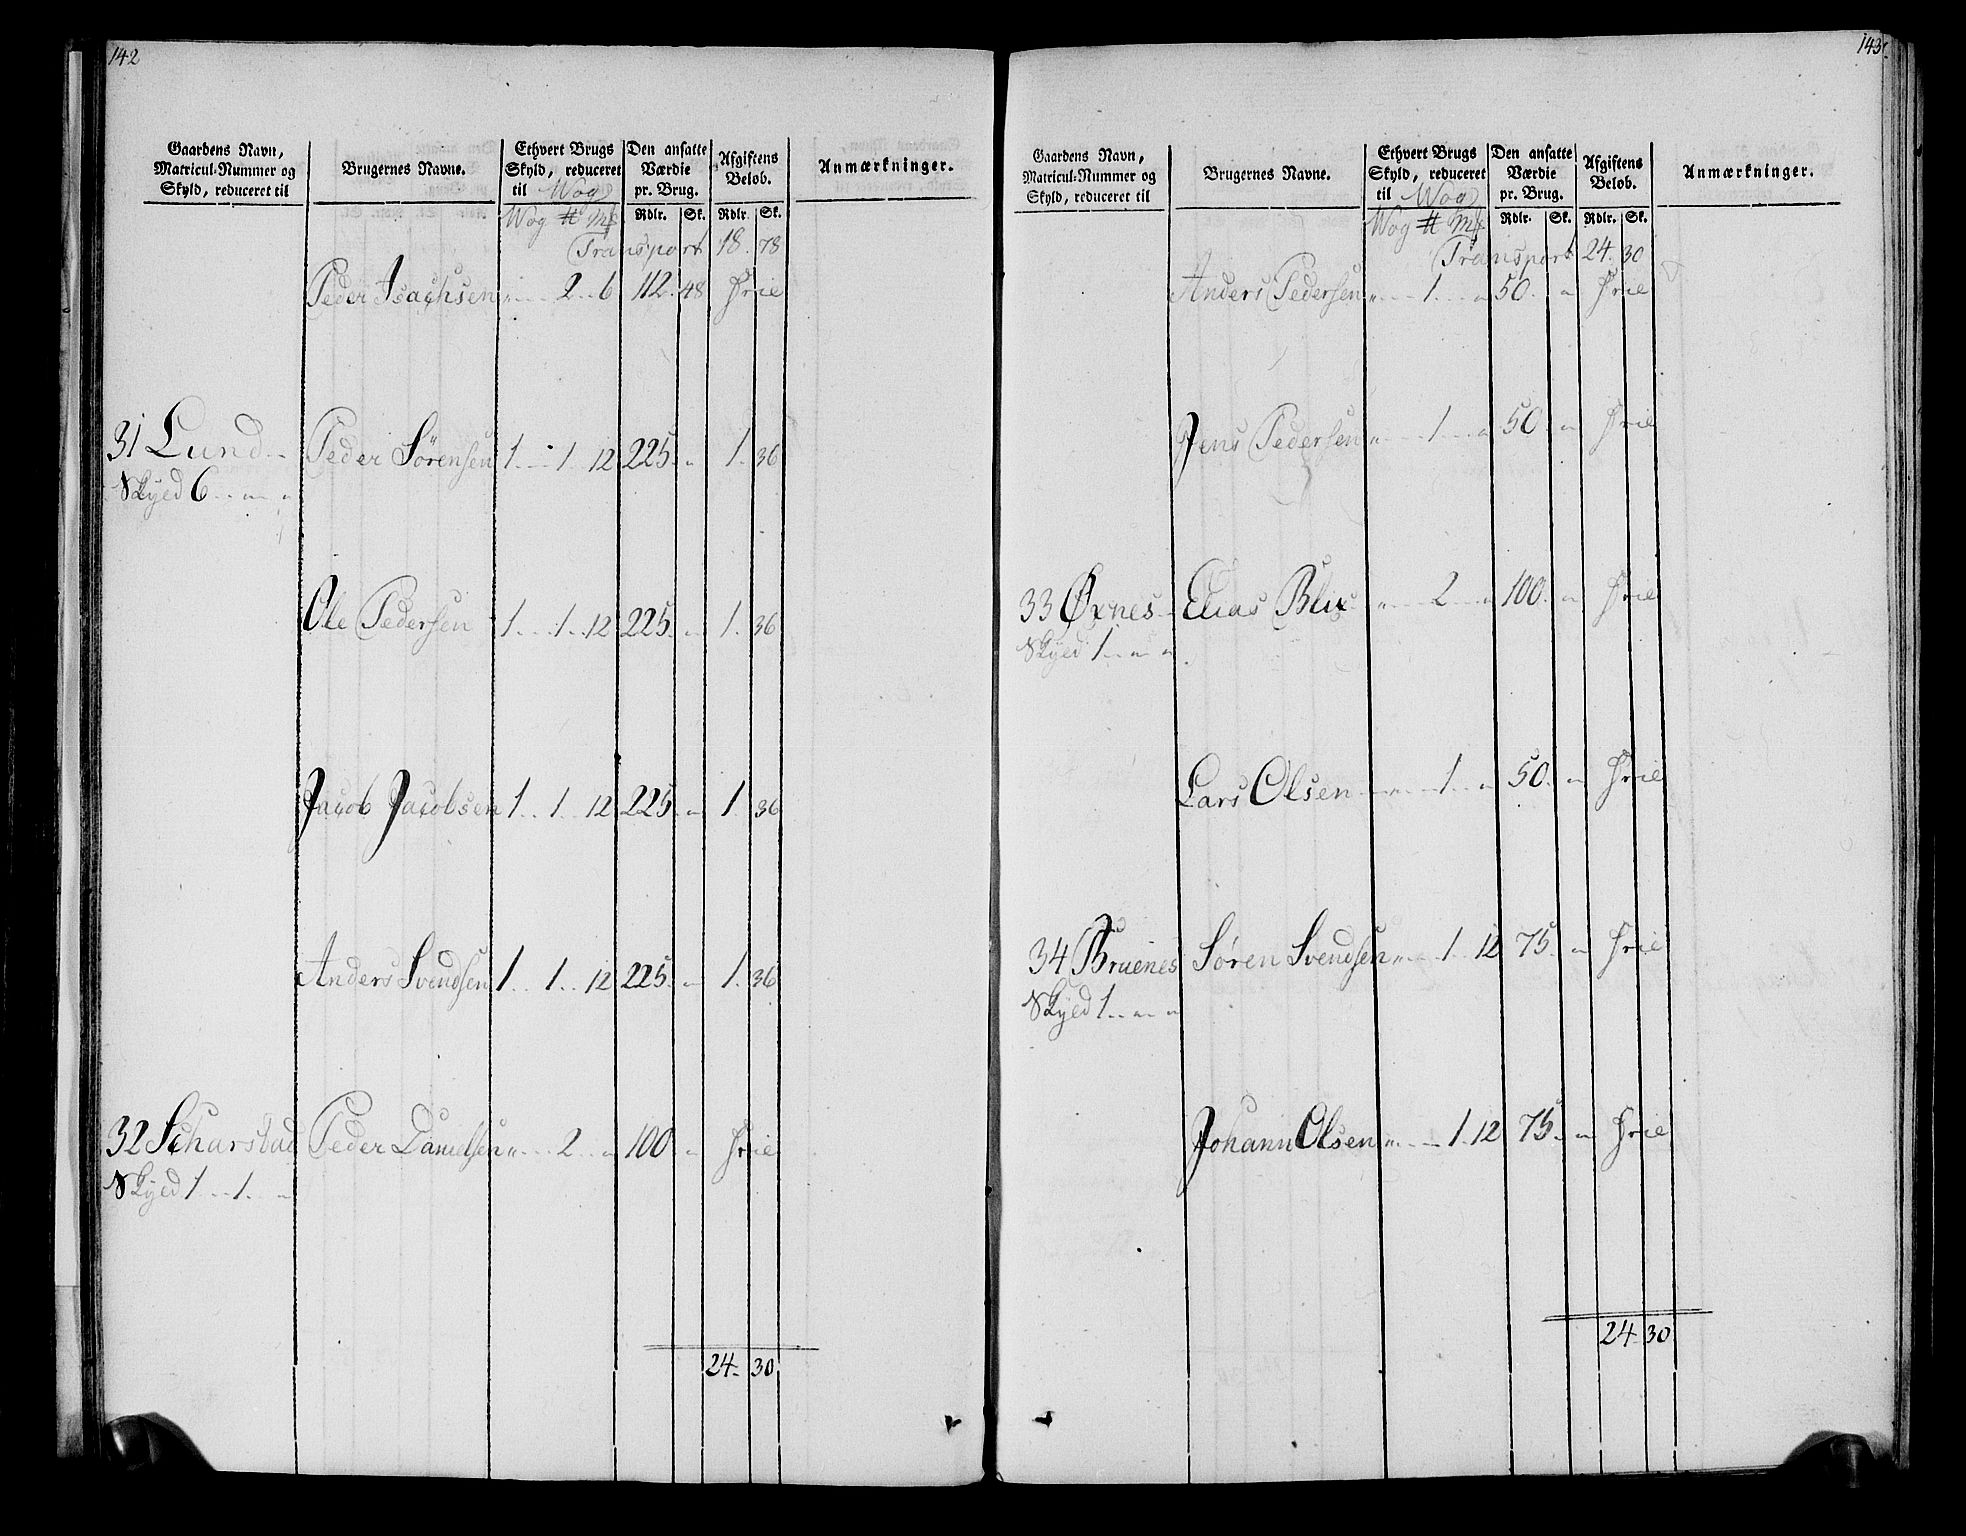 142
Gaardens Navn, Matricul-Nummer og Skyld, reduceret til | Brugernes Navne. | Ethvert Brugs Skyld, reduceret til Wog | Den ansatte Værdie pr. Brug. | Afgiftens Beløb. | Anmærkninger.
Wog ℔ Mk | Rdlr. | Sk. | Rdlr. | Sk.
Transport 18. 78
Peder Isachsen " 2 6 112. 48 Frie
31 Lund Peder Sörensen 1 1 12 225. " 1. 36
Skyld 6 " "
Ole Pedersen 1 1 12 225. " 1. 36
Jacob Jacobsen 1 1 12 225. " 1. 36
Anders Svendsen 1 1 12 225. " 1. 36
32 Scharstad Peder Danielsen " 2 " 100 " Frie
Skyld 1 1 "
24. 30
143
Gaardens Navn, Matricul-Nummer og Skyld, reduceret til | Brugernes Navne. | Ethvert Brugs Skyld, reduceret til Wog | Den ansatte Værdie pr. Brug. | Afgiftens Beløb. | Anmærkninger.
Wog ℔ Mk | Rdlr. | Sk. | Rdlr. | Sk.
Transport 24. 30
Anders Pedersen " 1 " 50. " Frie
Jens Pedersen " 1 " 50. " Frie
33 Øxnes Elias Blix " 2 " 100. " Frie
Skyld 1 " "
Lars Olsen " 1 " 50. " Frie
34 Bruenes Søren Svendsen " 1 12 75. " Frie
Skyld 1 " "
Johann Olsen " 1 12 75. " Frie
24. 30